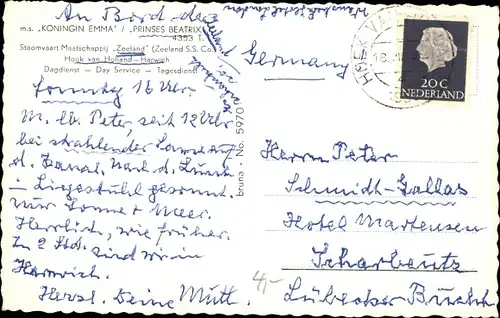 An Bord des
m.s. „KONINGIN EMMA" / „PRINSES BEATRIX"
4353 T.
Stoomvaart Maatschappij „Zeeland" (Zeeland S.S. Co.)
Hoek van Holland - Harwich
Dagdienst - Day Service - Tagesdienst
Sonntag 16 Uhr.
M. lb. Peter, seit 12 Uhr
bei strahlender Sonne auf
d. Kanal. Nach d. Lunch
im Liegestuhl gesonnt.
nur Sonne + Meer.
Herrlich, wie früher.
In 2 Std. sind wir in
Harwich.
Herzl. Deine Mutti.
bruna - No. 5970
Germany
HOEK VA
20 C
NEDERLAND
Herrn Peter
Schmidt-Gallas
Hotel Martensen
Scharbeutz
Lübecker Bucht
4,-